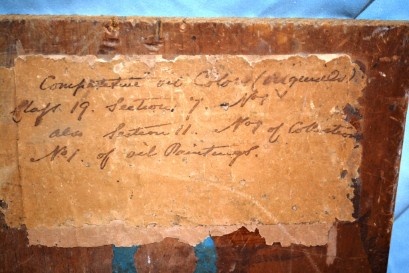 Competitive oil Colors (originals)
Class 19. Section 7. No 1
also Section 11. No 1 of Collection
No 1. of oil Paintings.